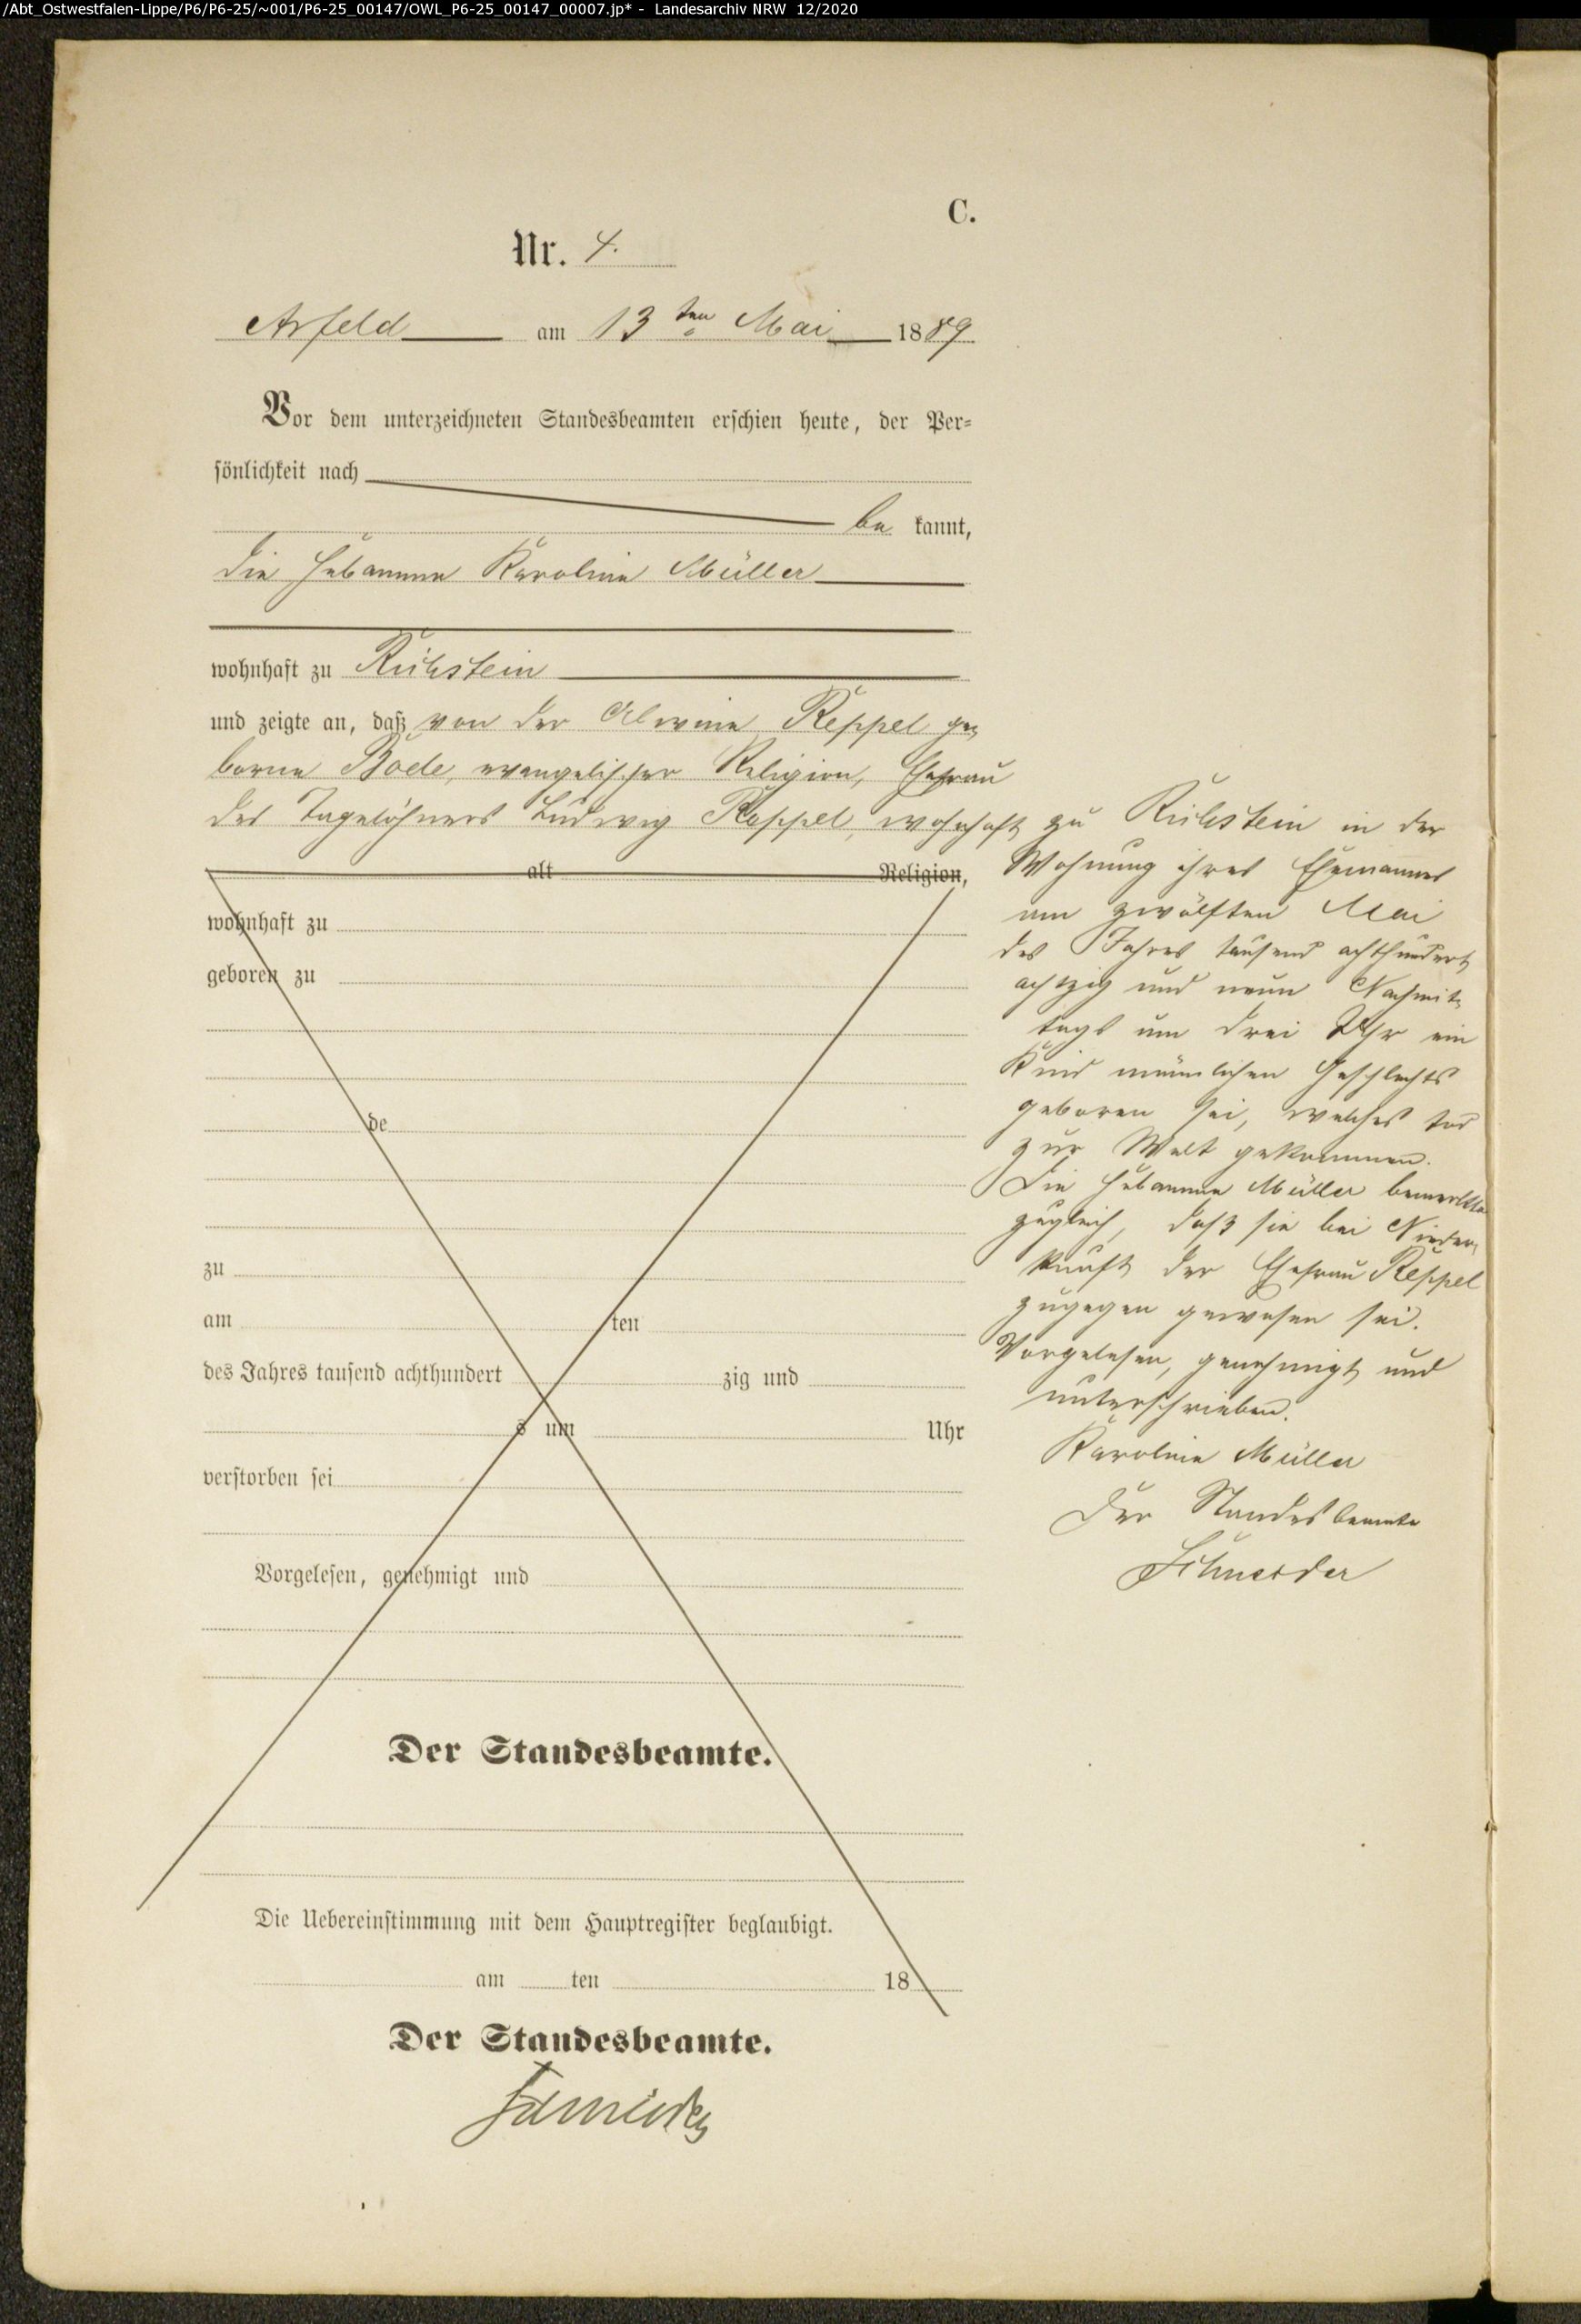 /Abt_Ostwestfalen-Lippe/P6/P6-25/~001/P6-25_00147/OWL_P6-25_00147_00007.jp* - Landesarchiv NRW 12/2020
C.
Nr. 4.
Arfeld am 13ten Mai 1889
Vor dem unterzeichneten Standesbeamten erschien heute, der Per-
sönlichkeit nach
be kannt,
die Hebamme Karoline Müller
wohnhaft zu
und zeigte an, daß von der Alwine Reppel ge-
borne Bode, evangelischer Religion, Ehefrau
des Tagelöhners Ludwig Reppel, wohnhaft zu in der
alt Religion,
Wohnung ihres Ehemannes
wohnhaft zu
am zwölften Mai
des Jahres tausend achthundert
geboren zu
achtzig und neun Nachmit-
tags um drei Uhr ein
Kind männlichen Geschlechts
geboren sei, welches tod
de
zur Welt gekommen.
Die Hebamme Müller bemerkte
zugleich, daß sie bei Nieder-
kunft der Ehefrau Reppel
zu
zugegen gewesen sei.
am ten
Vorgelesen, genehmigt und
des Jahres tausend achthundert zig und
unterschrieben.
s um Uhr
Karoline Müller
verstorben sei
Der Standesbeamte
Schneider
Vorgelesen, genehmigt und
Der Standesbeamte.
Die Uebereinstimmung mit dem Hauptregister beglaubigt.
am ten 18
Der Standesbeamte.
Schneider